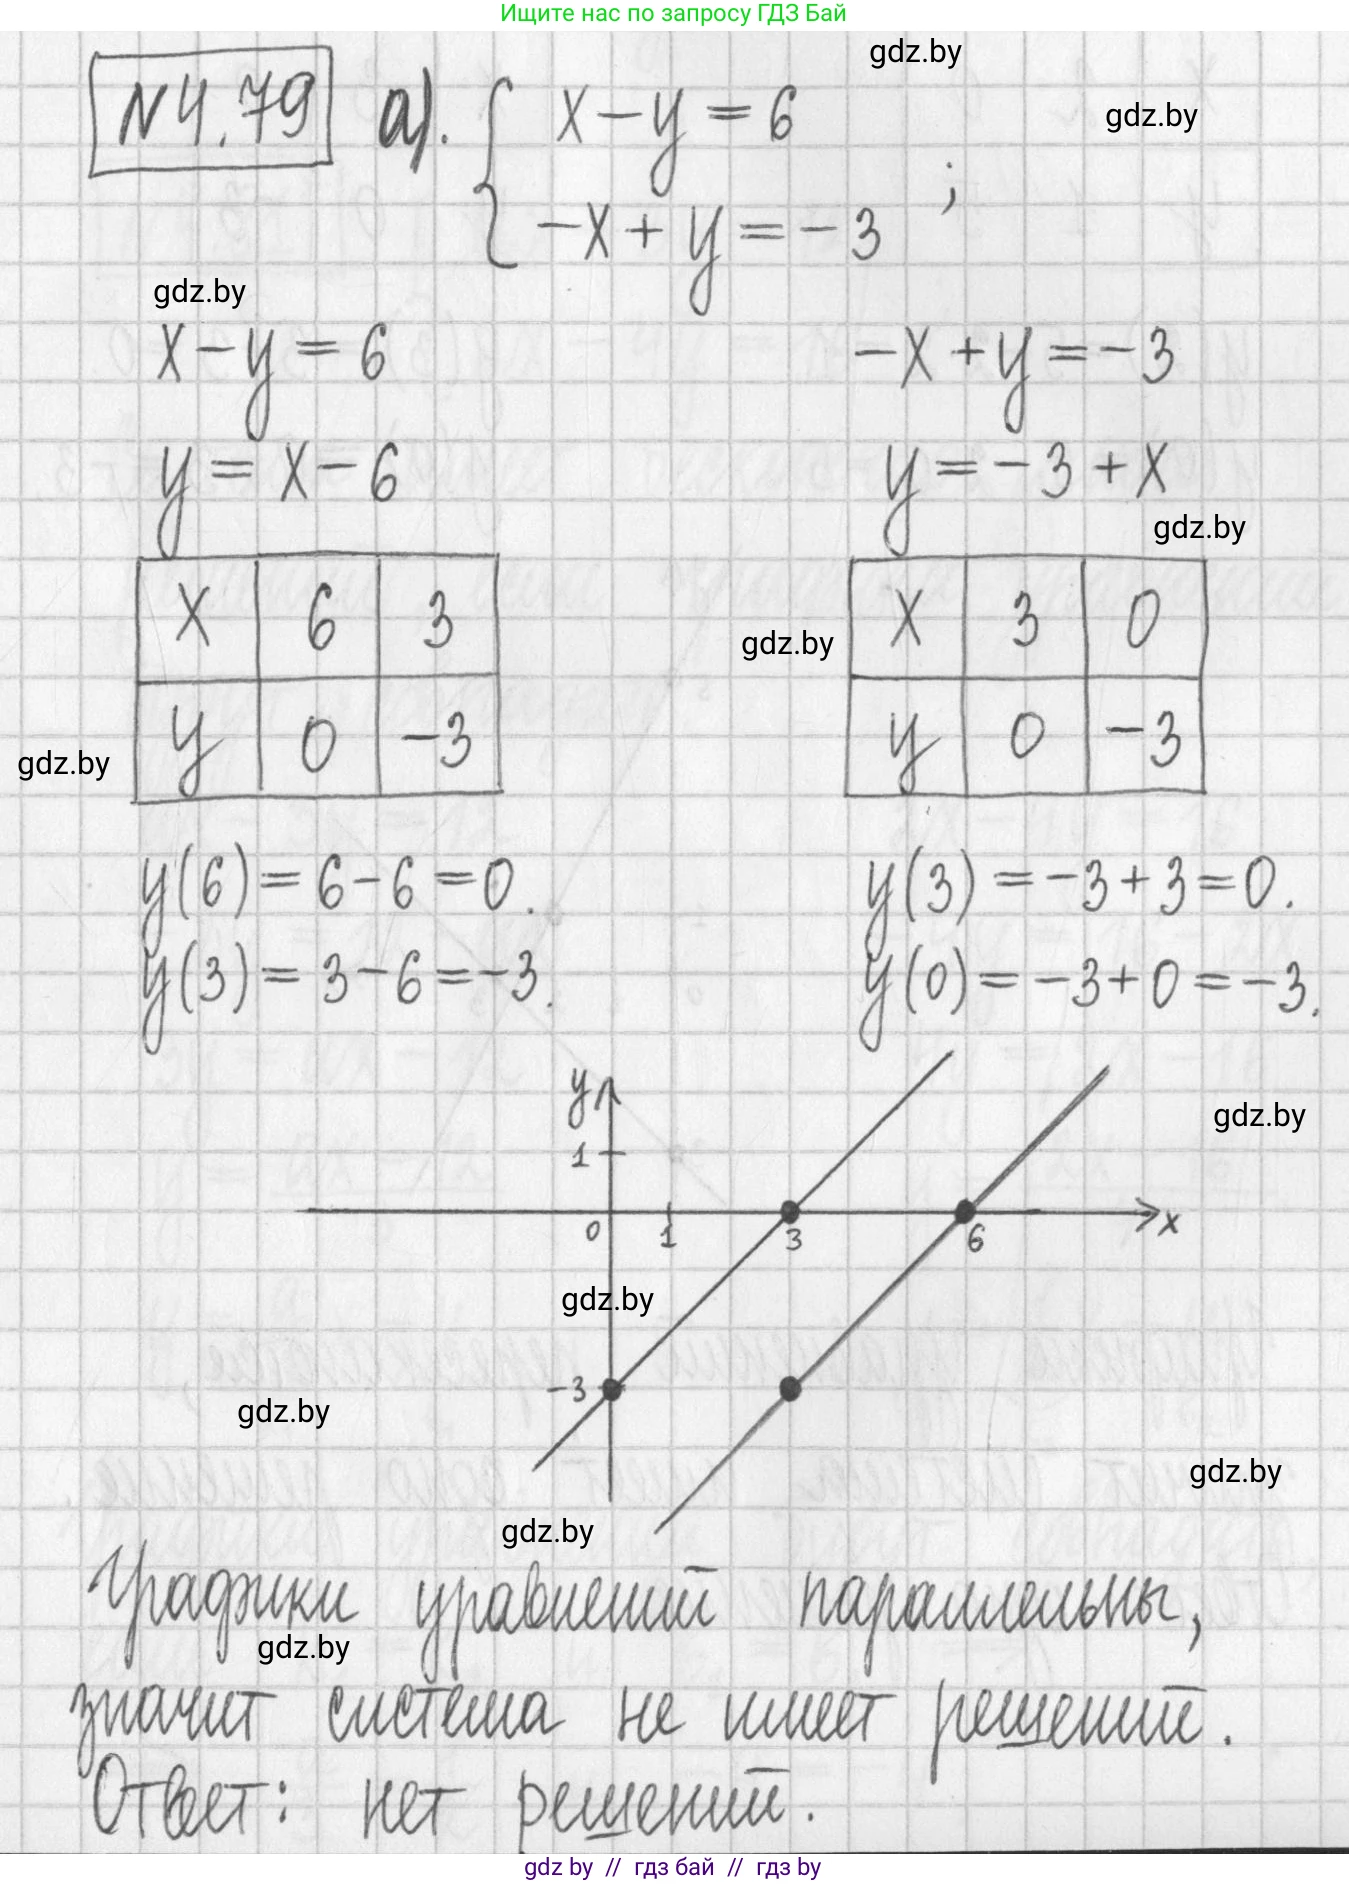 Ищите нас по запросу ГДЗ Бай
gdz.by
N4.79 а). { x-y=6
gdz.by
-x+y=-3 ;
gdz.by
x-y=6 -x+y=-3
y=x-6 y=-3+x
gdz.by
x 6 3 x 3 0
gdz.by
y 0 -3 y 0 -3
gdz.by
y(6)=6-6=0. y(3)=-3+3=0.
y(3)=3-6=-3. y(0)=-3+0=-3.
y
gdz.by
1
0 1 3 6 x
gdz.by
-3
gdz.by
gdz.by
gdz.by
Графики уравнений параллельны,
gdz.by
значит система не имеет решений.
Ответ: нет решений.
gdz by // гдз бай // гдз by